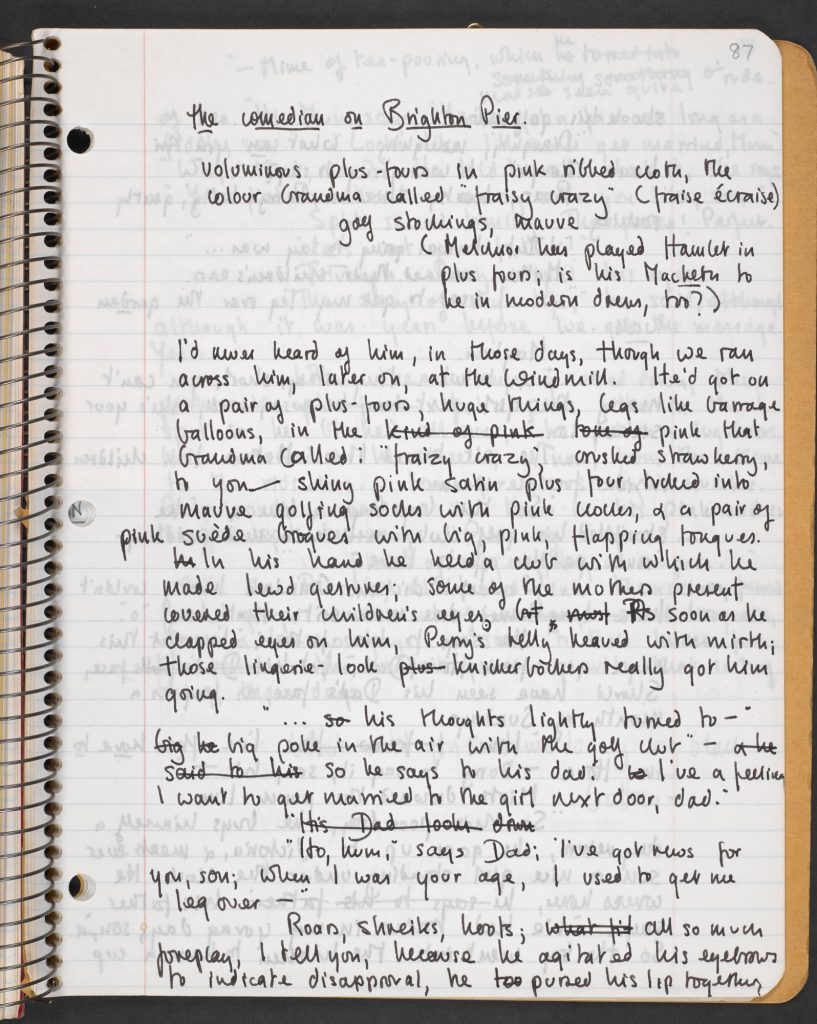 87
The comedian on Brighton Pier.
voluminous plus-fours in pink ribbed cloth, the
colour Grandma called "fraisy crazy" (fraise écraise)
gay stockings, mauve
(Melchior has played Hamlet in
plus fours; is his Macbeth to
be in modern dress, too?)
I'd never heard of him, in those days, though we ran
across him, later on, at the Windmill. He'd got on
a pair of plus-fours huge things, legs like barrage
balloons, in the kind of pink tone of pink that
Grandma called: "fraizy crazy," crushed strawberry,
to you — shiny pink satin plus four tucked into
mauve golfing socks with pink clocks, & a pair of
pink suède brogues with big, pink, flapping tongues.
In his hand he held a club with which he
made lewd gestures; some of the mothers present
covered their children's eyes, but, As soon as he
clapped eyes on him, Perry's belly heaved with mirth;
those lingerie-look plus knickerbockers really got him
going.
"... so his thoughts lightly turned to —"
big he big poke in the air with the golf club" — & he
said to his so he says to his dad: "I've a feeling
I want to get married to the girl next door, dad."
"His Dad looks
"Ho, hum," says Dad; I've got news for
you, son; when I was your age, I used to get me
leg over —"
Roars, shreiks, hoots; all so much
foreplay, I tell you, because he agitated his eyebrows
to indicate disapproval, he too pursed his lip together,